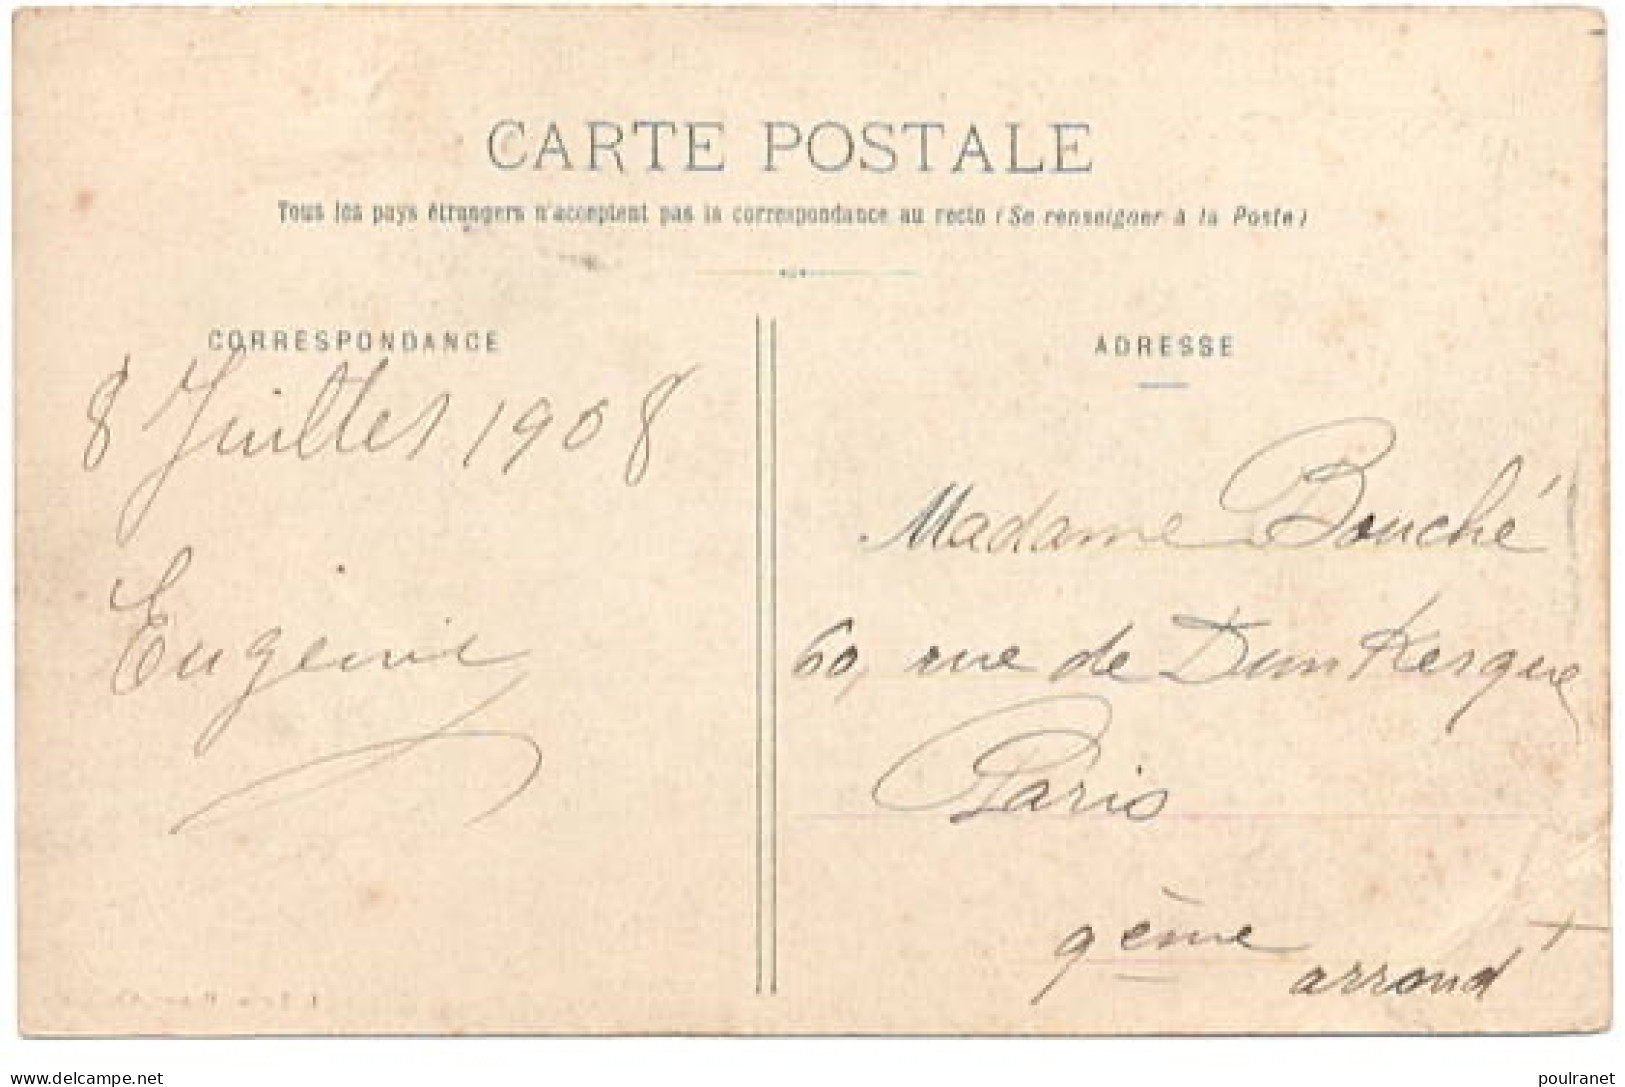 CARTE POSTALE
Tous les pays étrangers n'acceptent pas la correspondance au recto (Se renseigner à la Poste)
CORRESPONDANCE
8 Juillet 1908
Eugénie
ADRESSE
Madame Bouché
60, rue de Dunkerque
Paris
9ème
arrond t
www.delcampe.net
poulranet